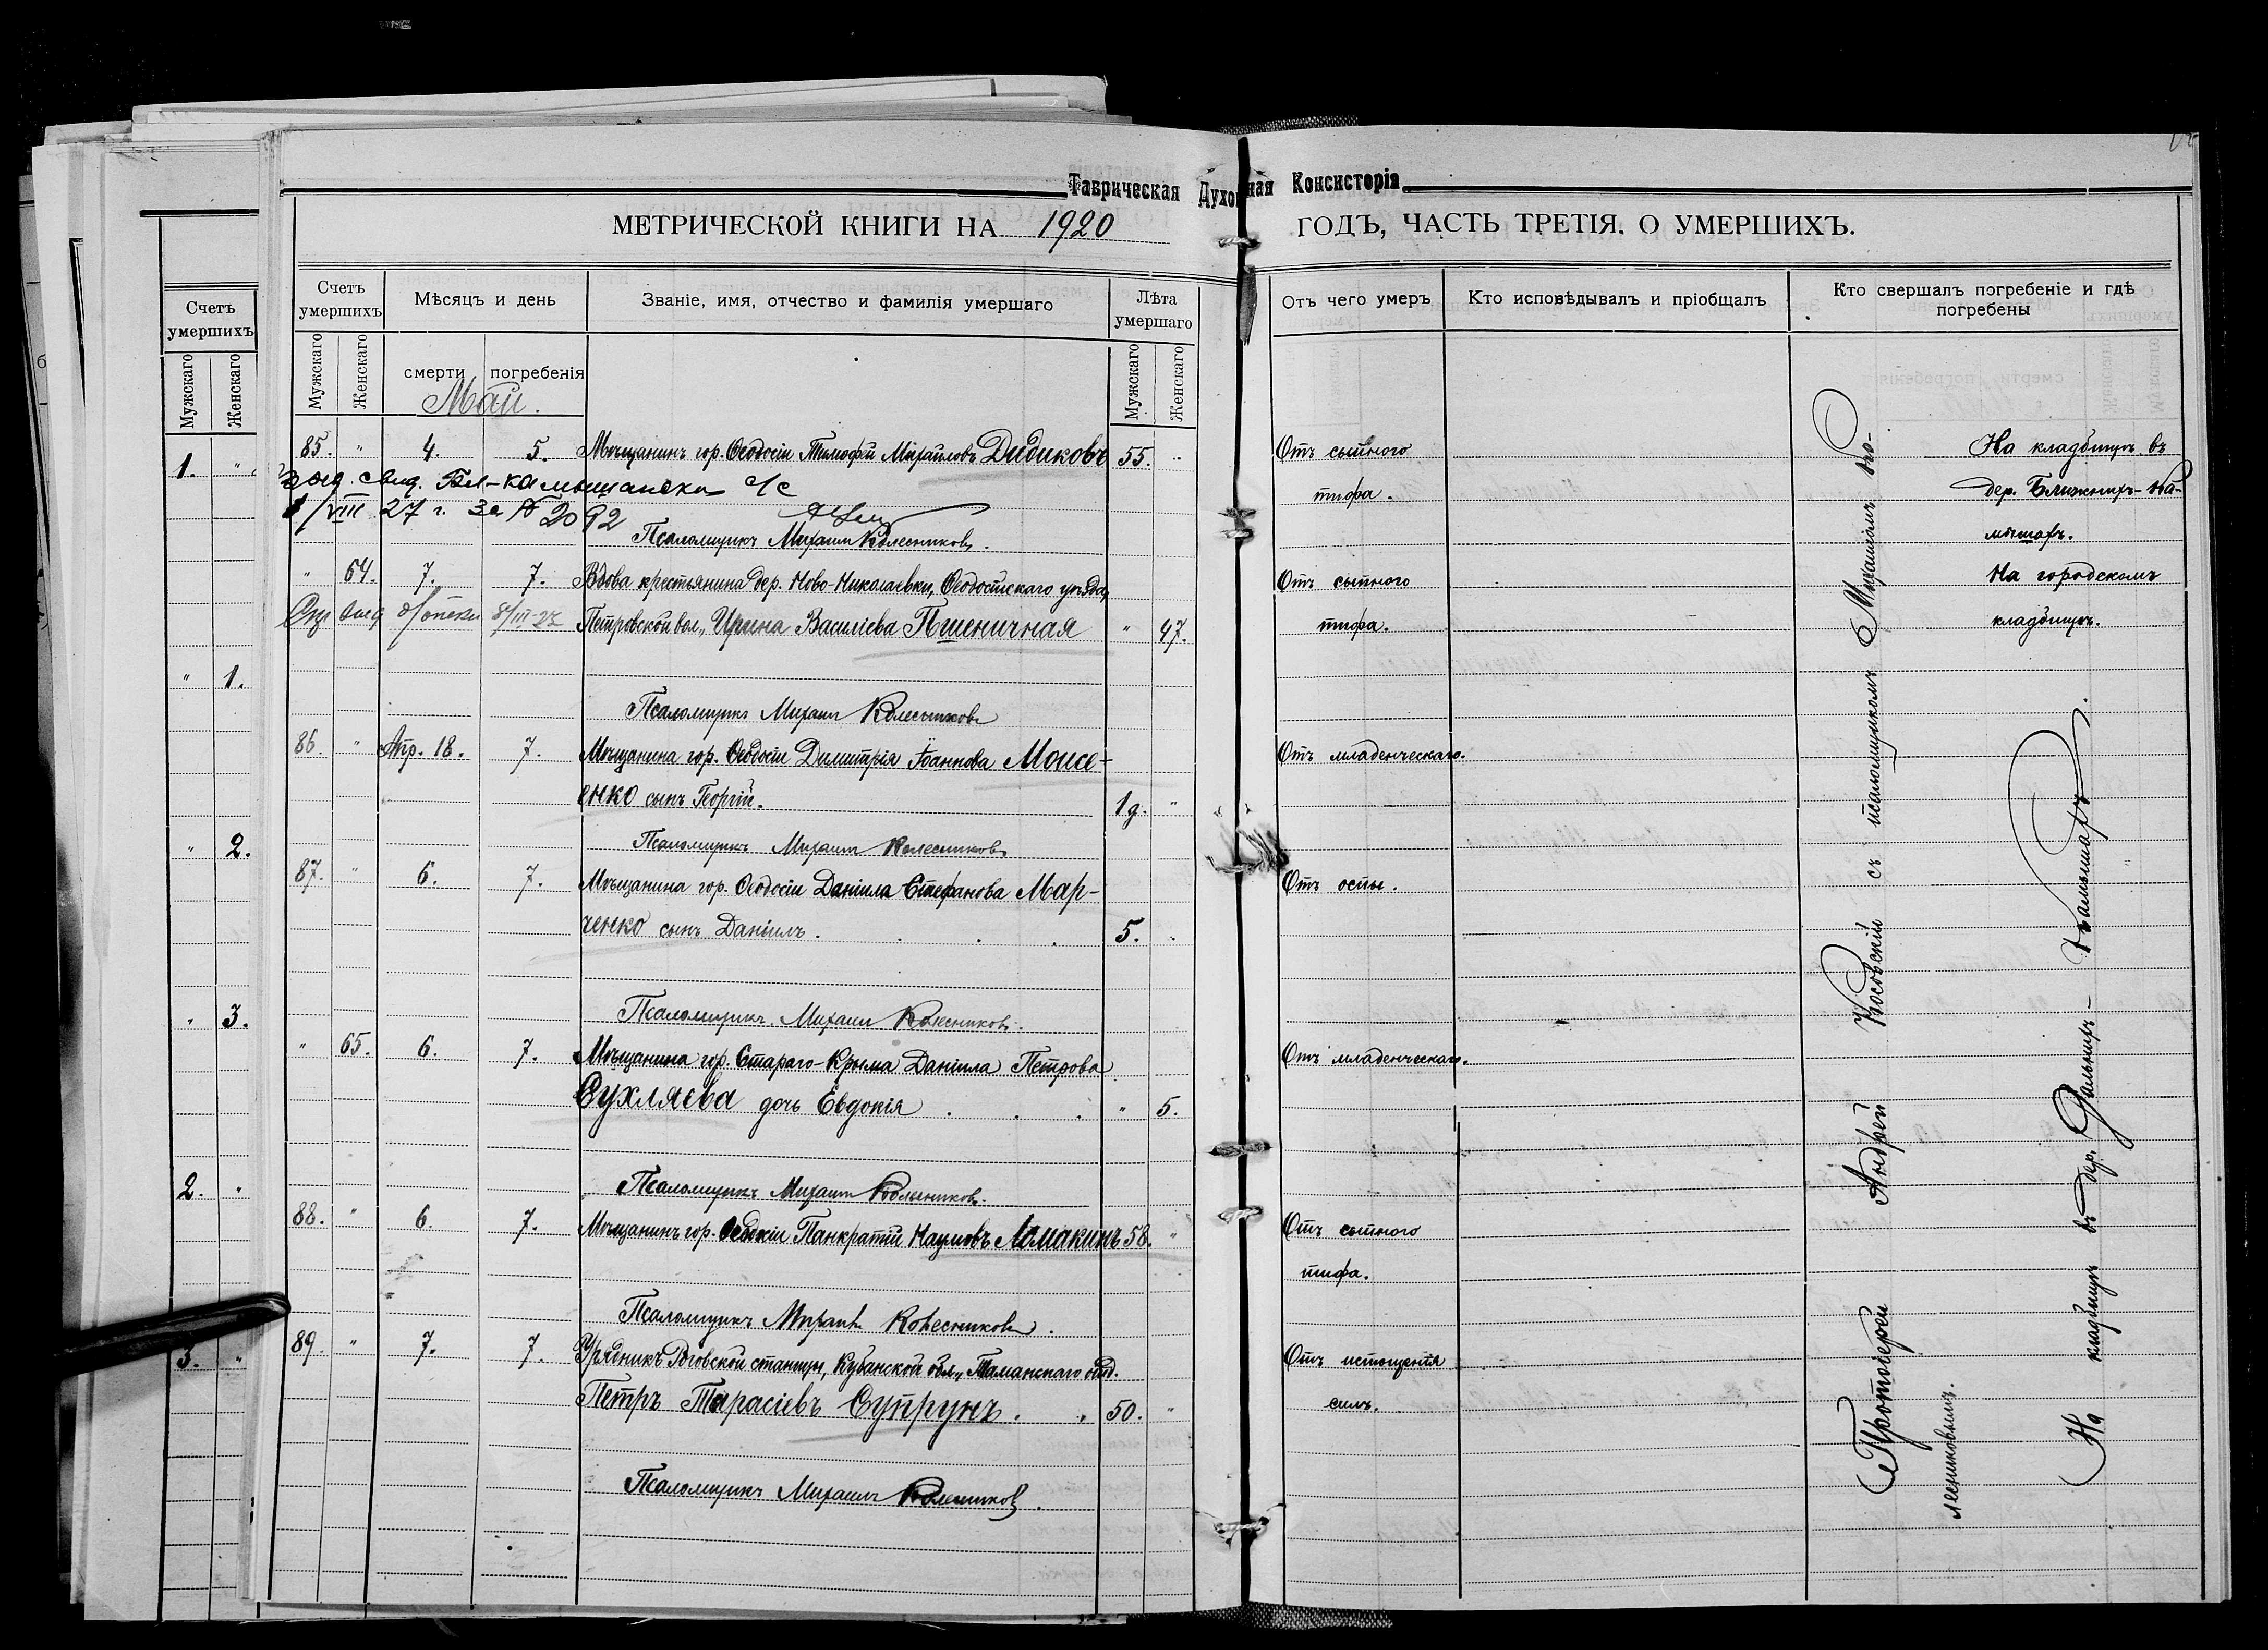 Таврическая Духовная Консисторія
МЕТРИЧЕСКОЙ КНИГИ НА 1920 ГОДЪ, ЧАСТЬ ТРЕТІЯ. О УМЕРШИХЪ.
Счетъ умершихъ
Мужскаго
Женскаго
1. "
" 1.
" 2.
" 3.
2. "
3. "
Счетъ умершихъ
Мѣсяцъ и день
Званіе, имя, отчество и фамилія умершаго
Лѣта умершаго
Отъ чего умеръ
Кто исповѣдывалъ и пріобщалъ
Кто свершалъ погребеніе и гдѣ погребены
Мужскаго
Женскаго
смерти
погребенія
Мужскаго
Женскаго
Май.
85. " 4. 5. Мѣщанинъ гор. Ѳеодосіи Тимофей Михайловъ Дидиковъ 55. " Отъ сыпного
На кладбищѣ въ
тифа.
дер. Ближнихъ-Ка-
мышахъ.
1/VIII 27 г. за № 2092
Псаломщикъ Михаилъ Колесниковъ.
" 64. 7. 7. Вдова крестьянина дер. Ново-Николаевки, Ѳеодосійскаго уѣзда,
Отъ сыпного
На городскомъ
8/III-27
Петровской вол., Ирина Василіева Пшеничная " 47.
тифа.
кладбищѣ.
Псаломщикъ Михаилъ Колесниковъ
86. " Апр. 18. 7. Мѣщанина гор. Ѳеодосіи Димитрія Іоаннова Моисе-
Отъ младенческаго.
енко сынъ Георгій. 1 д. "
Псаломщикъ Михаилъ Колесниковъ
87. " 6. 7. Мѣщанина гор. Ѳеодосіи Даніила Стефанова Мар-
Отъ оспы.
ченко сынъ Даніилъ. 5.
Псаломщикъ Михаилъ Колесниковъ.
" 65. 6. 7. Мѣщанина гор. Стараго-Крыма Даніила Петрова
Отъ младенческаго.
Сухляева дочь Евдокія " 5.
Псаломщикъ Михаилъ Колесниковъ.
88. " 6. 7. Мѣщанинъ гор. Ѳеодосіи Панкратій Наумовъ Ломакинъ 58. "
Отъ сыпного
тифа.
Псаломщикъ Михаилъ Колесниковъ.
89. " 7. 7. Урядникъ станицы, Кубанской обл., Таманскаго отд.
Отъ истощенія
Петръ Тарасіевъ Супрунъ. 50. "
силъ.
Псаломщикъ Михаилъ Колесниковъ.
Протоіерей Андрей Косовскій съ псаломщикомъ Михаиломъ Ко-
лесниковымъ.
На кладбищѣ въ дер. Дальнихъ-Камышахъ.